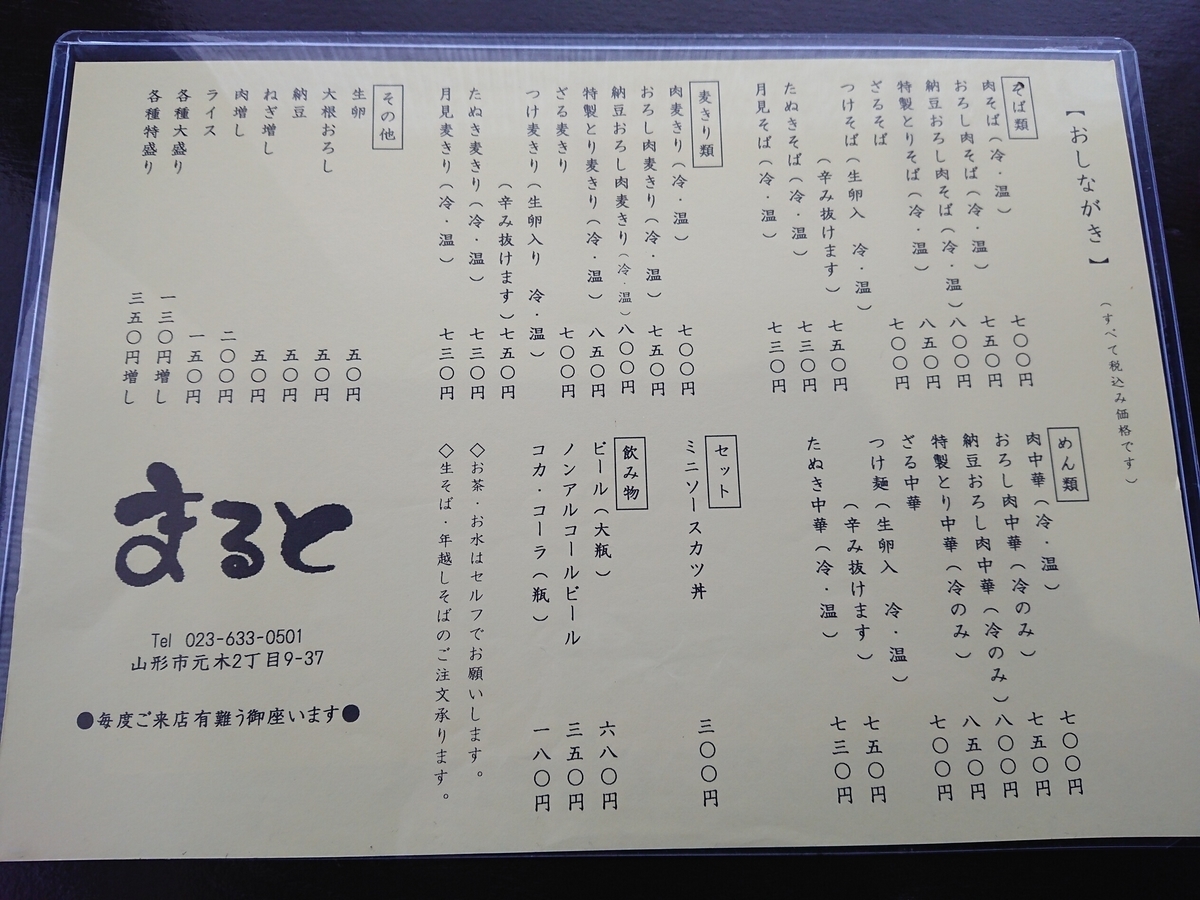 【おしながき】
（すべて税込み価格です）
そば類
肉そば（冷・温） 七〇〇円
おろし肉そば（冷・温） 七五〇円
納豆おろし肉そば（冷・温） 八〇〇円
特製とりそば（冷・温） 八五〇円
ざるそば 七〇〇円
つけそば（生卵入 冷・温）
（辛み抜けます） 七五〇円
たぬきそば（冷・温） 七三〇円
月見そば（冷・温） 七三〇円
麦きり類
肉麦きり（冷・温） 七〇〇円
おろし肉麦きり（冷・温） 七五〇円
納豆おろし肉麦きり（冷・温） 八〇〇円
特製とり麦きり（冷・温） 八五〇円
ざる麦きり 七〇〇円
つけ麦きり（生卵入り 冷・温）
（辛み抜けます） 七五〇円
たぬき麦きり（冷・温） 七三〇円
月見麦きり（冷・温） 七三〇円
その他
生卵 五〇円
大根おろし 五〇円
納豆 五〇円
ねぎ増し 五〇円
肉増し 二〇〇円
ライス 一五〇円
各種大盛り 一三〇円増し
各種特盛り 三五〇円増し
めん類
肉中華（冷・温） 七〇〇円
おろし肉中華（冷のみ） 七五〇円
納豆おろし肉中華（冷のみ） 八〇〇円
特製とり中華（冷のみ） 八五〇円
ざる中華 七〇〇円
つけ麺（生卵入 冷・温）
（辛み抜けます） 七五〇円
たぬき中華（冷・温） 七三〇円
セット
ミニソースカツ丼 三〇〇円
飲み物
ビール（大瓶） 六八〇円
ノンアルコールビール 三五〇円
コカ・コーラ（瓶） 一八〇円
◇お茶・お水はセルフでお願いします。
◇生そば・年越しそばのご注文承ります。
まると
Tel 023-633-0501
山形市元木2丁目9-37
●毎度ご来店有難う御座います●